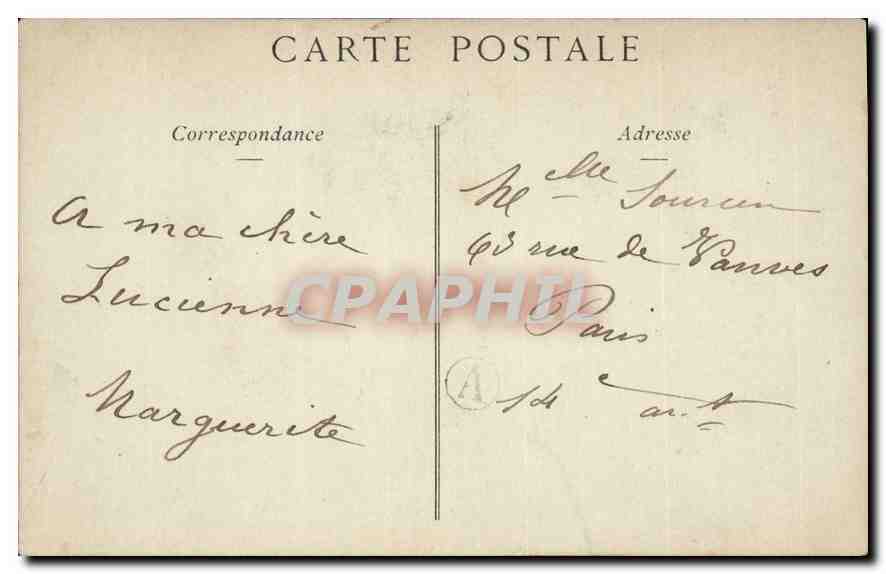 CARTE POSTALE
Correspondance
A ma chère
Lucienne
Marguerite
Adresse
Melle
63 rue de Vanves
Paris
14e art
A
CPAPHIL